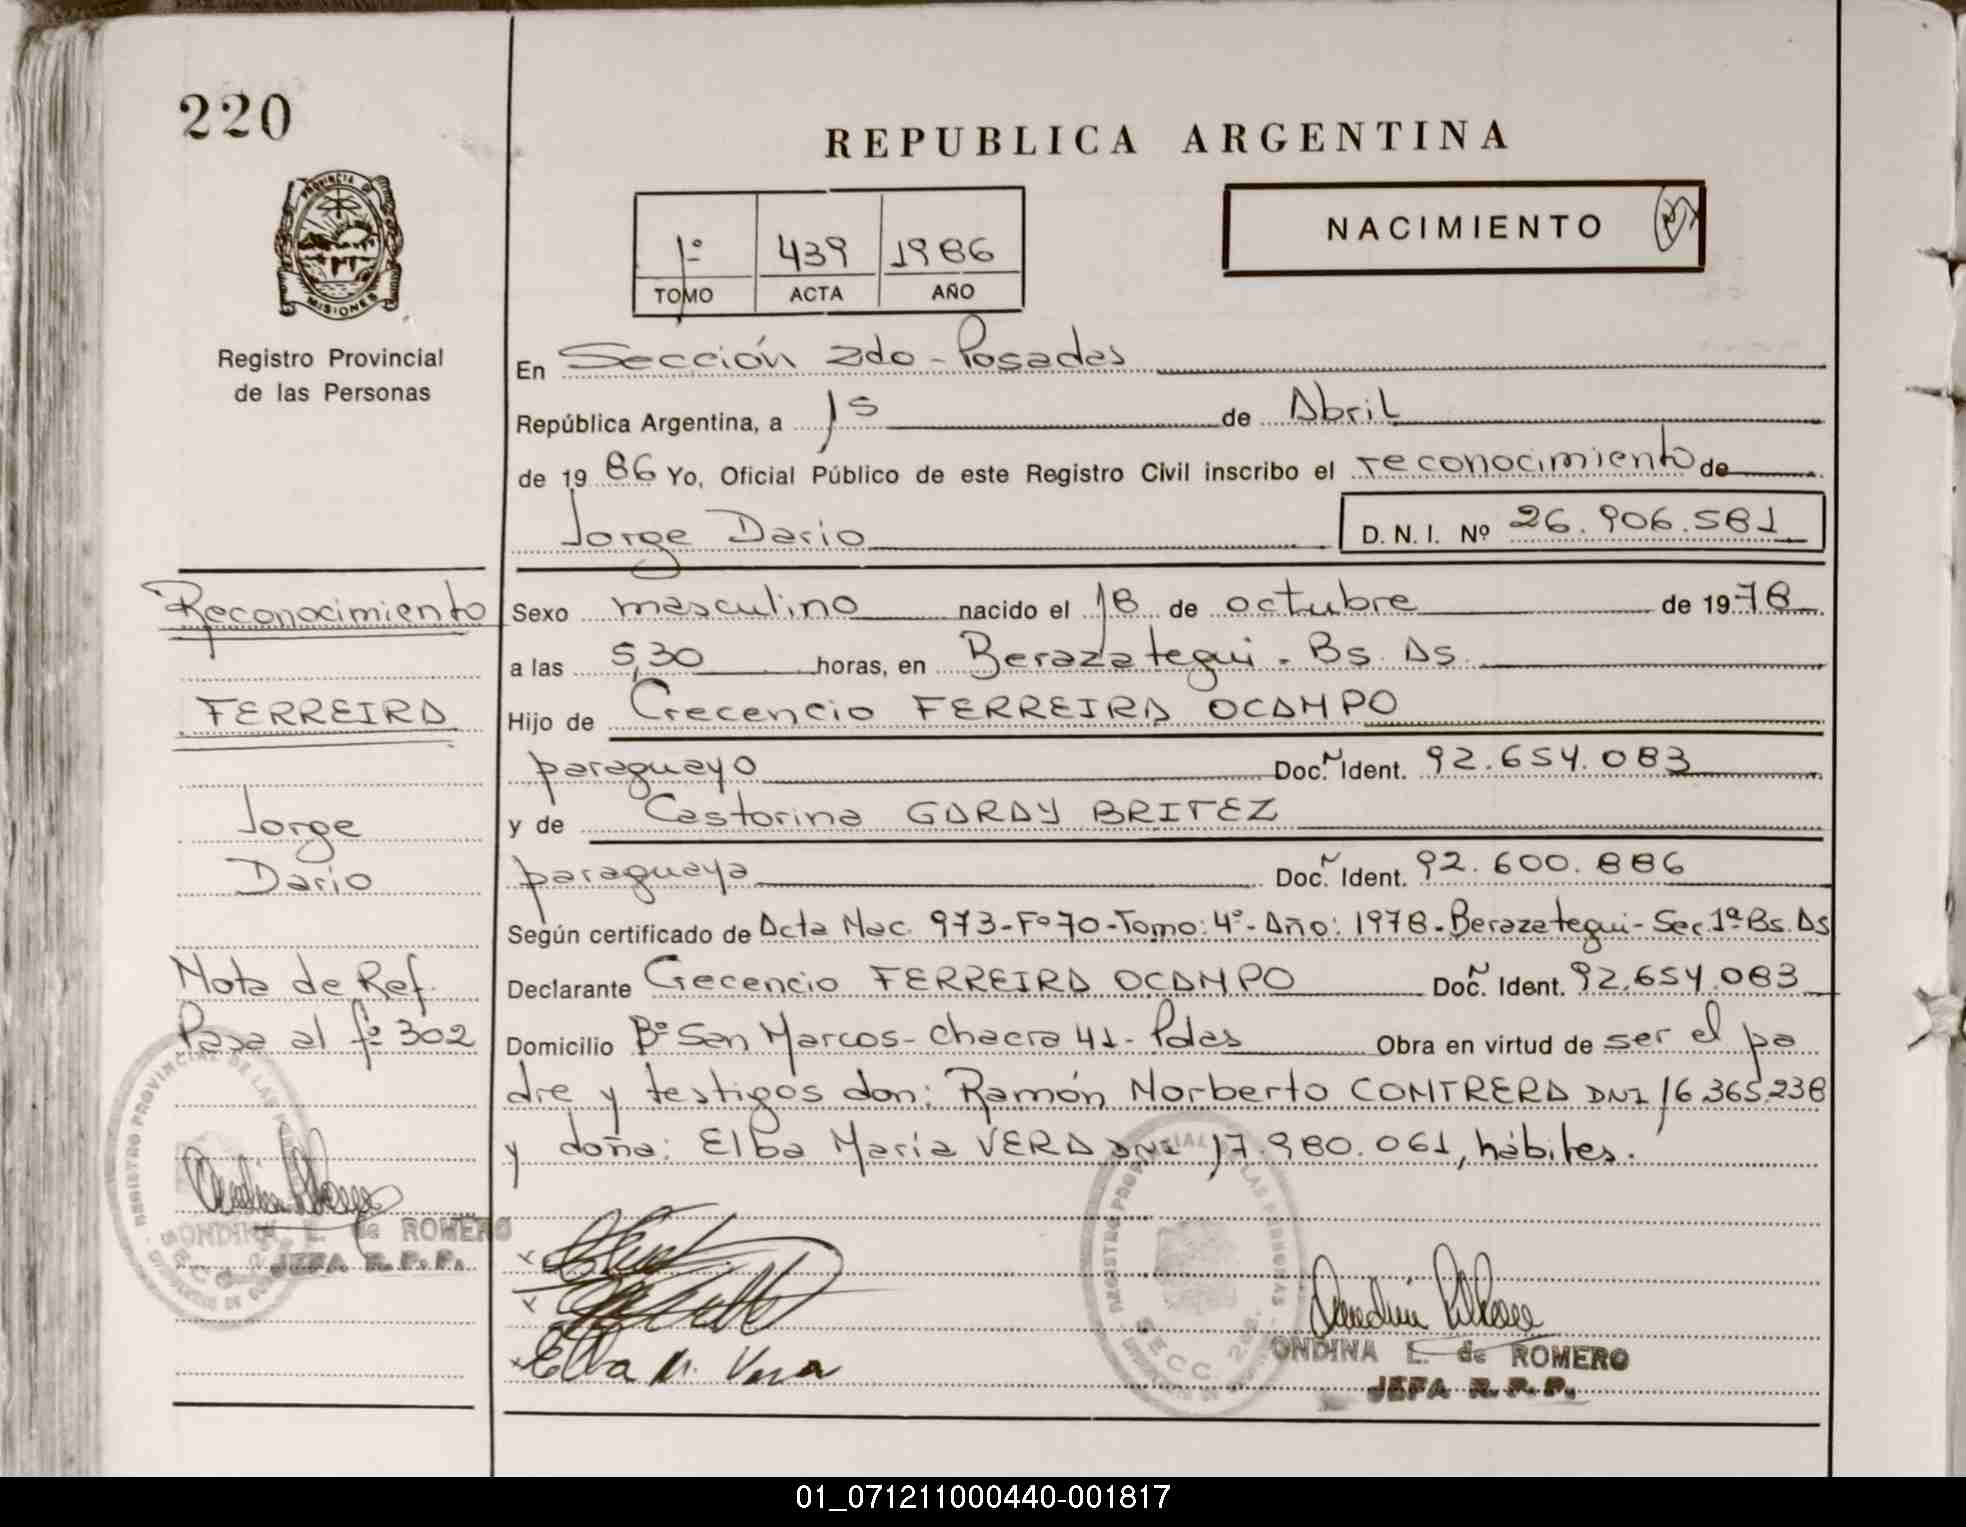 220
PROVINCIA DE
MISIONES
Registro Provincial
de las Personas
REPUBLICA ARGENTINA
1º 439 1986
TOMO ACTA AÑO
NACIMIENTO
En Sección 2do - Posadas
República Argentina, a 15 de Abril
de 19 86 Yo, Oficial Público de este Registro Civil inscribo el reconocimiento de
Jorge Dario D. N. I. Nº 26.906.581
Sexo masculino nacido el 18 de octubre de 1978
a las 5,30 horas, en Berazategui - Bs. As.
Hijo de Crecencio FERREIRA OCAMPO
paraguayo Doc. Ident. 92.654.083
y de Castorina GARAY BRITEZ
paraguaya Doc. Ident. 92.600.886
Según certificado de Acta Nac. 973 - Fº 70 - Tomo: 4º - Año: 1978 - Berazategui - Sec. 1ª Bs. As
Declarante Crecencio FERREIRA OCAMPO Doc. Ident. 92.654.083
Domicilio Bº San Marcos - Chacra 41 - Pdas Obra en virtud de ser el pa
dre y testigos don: Ramón Norberto CONTRERA DNI 16.365.238
y doña: Elba María VERA DNI 17.980.061, hábiles.
Elba M. Vera
SECC. 2da.
ONDINA E. de ROMERO
JEFA R. P. P.
Reconocimiento
FERREIRA
Jorge
Dario
Nota de Ref.
Pasa al fº 302
ONDINA E. de ROMERO
JEFA R. P. P.
01_071211000440-001817